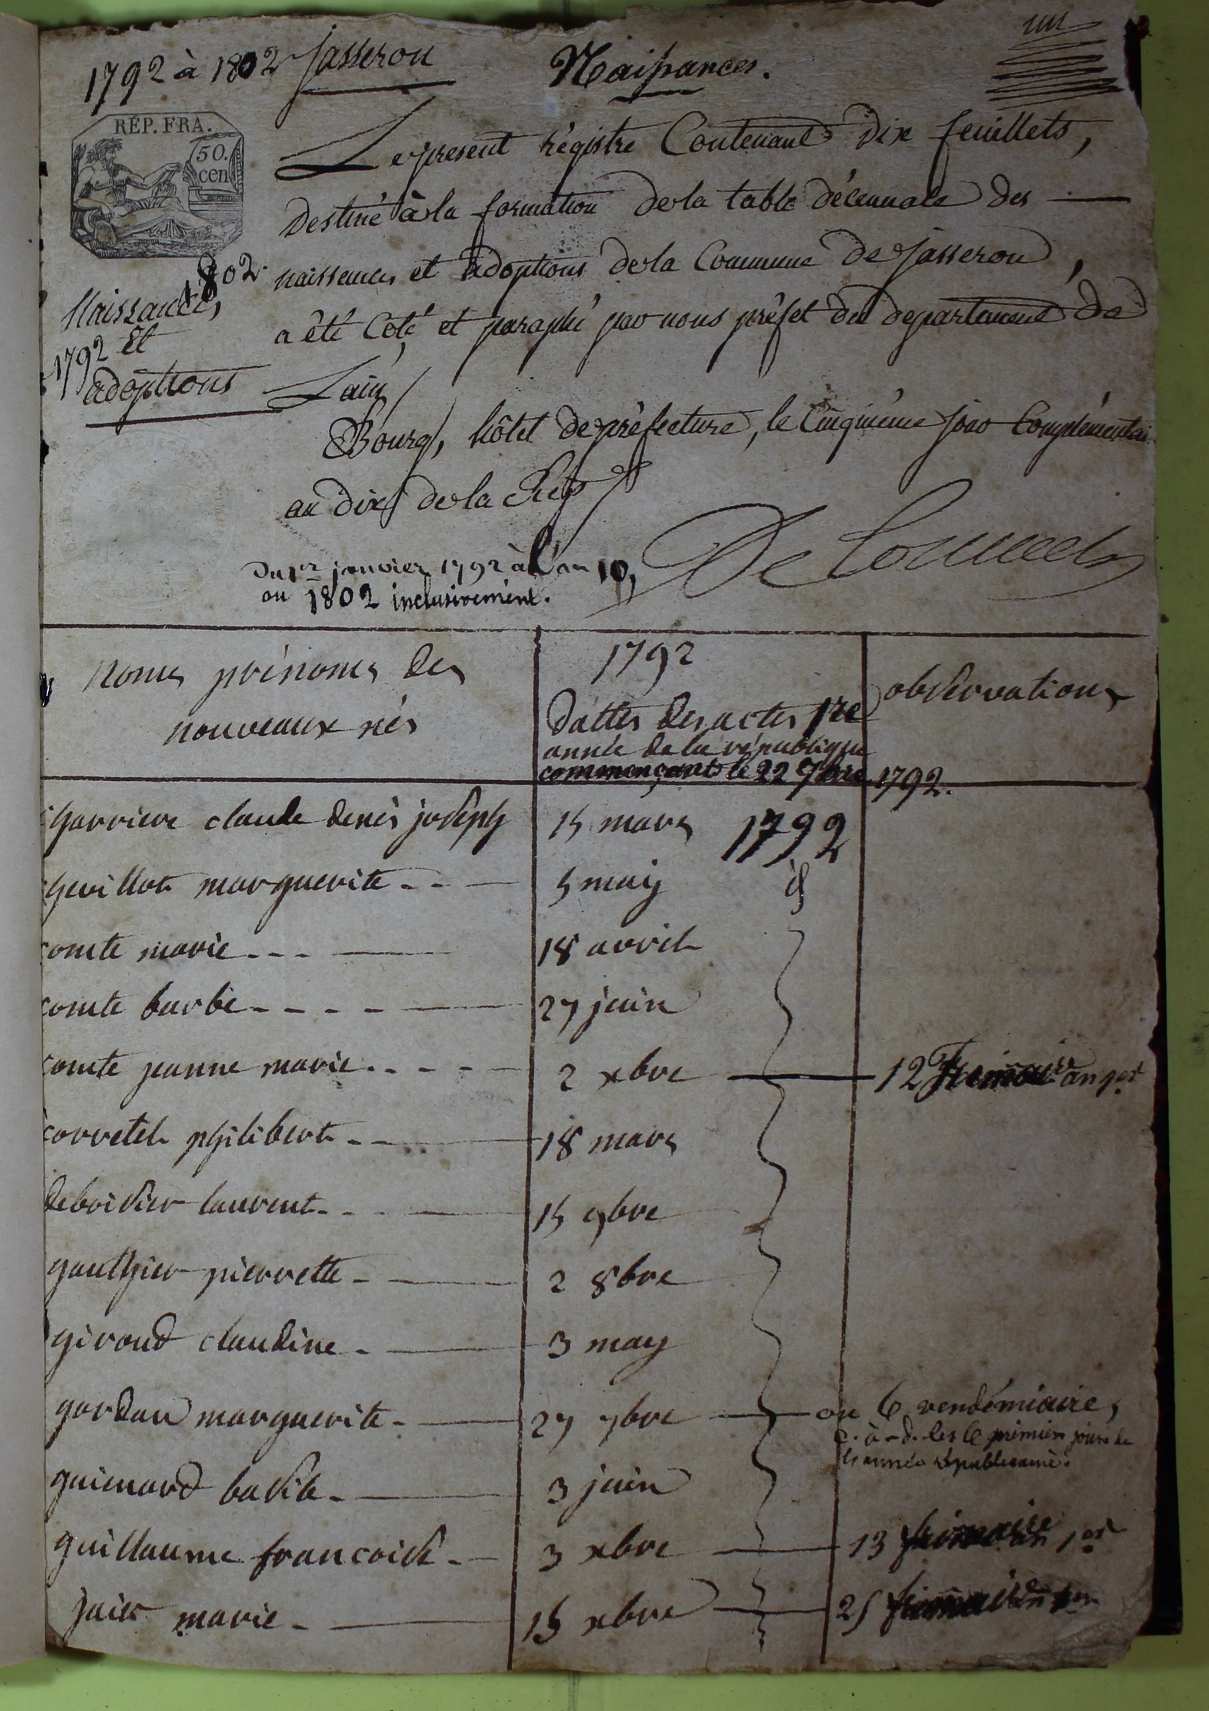 1792 à 1802 Jasseron Naissances.
RÉP. FRA.
50.
cen
Le present régistre Contenant dix feuillets,
destiné à la formation de la table décennale des
naissances et adoptions de la Commune de Jasseron,
a été Coté et paraphé par nous préfet du departement de
Lain
Naissances
1802
et
1792
adoptions
Bourg, hôtel de préfecture, le Cinquième jour Complémentai
an dix de la Rep
Du 1er janvier 1792 à l'an 10,
ou 1802 inclusivement.
noms prénoms des
nouveaux nés
1792
dattes des actes 1re
année de la république
commençant le 22 7bre 1792.
observations
charriere claude denis joseph 15 mars 1792
chevillot marguerite 5 may id
comte marie 18 avril
comte barbe 27 juin
comte jeanne marie 2 xbre 12 Frimaire an 1er
corretel philibert 18 mars
deboissier laurent 15 9bre
gauthier pierrette 2 8bre
giroud claudine 3 may
gordan marguerite 27 7bre ou 6 vendémiaire,
c. à-d. les 6 premiers jours de
l'année républicaine.
guienard basile 3 juin
guillaume francoise 3 xbre 13 frimaire an 1er
jaier marie 15 xbre 25 frimaire an 1er